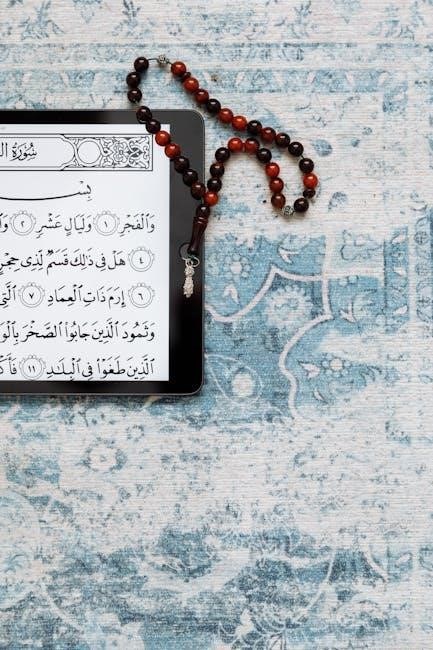 سُورَةُ
بِسْ
وَالْفَجْرِ ١ وَلَيَالٍ عَشْرٍ ٢ وَال
٤ هَلْ فِي ذَٰلِكَ قَسَمٌ لِّذِي حِجْرٍ
٦ إِرَمَ ذَاتِ الْعِمَادِ ٧ الَّتِي
وَثَمُودَ الَّذِينَ جَابُوا الصَّخْرَ بِالْوَا
الَّذِينَ طَغَوْا فِي الْبِلَـٰدِ ١١ فَأَكْ